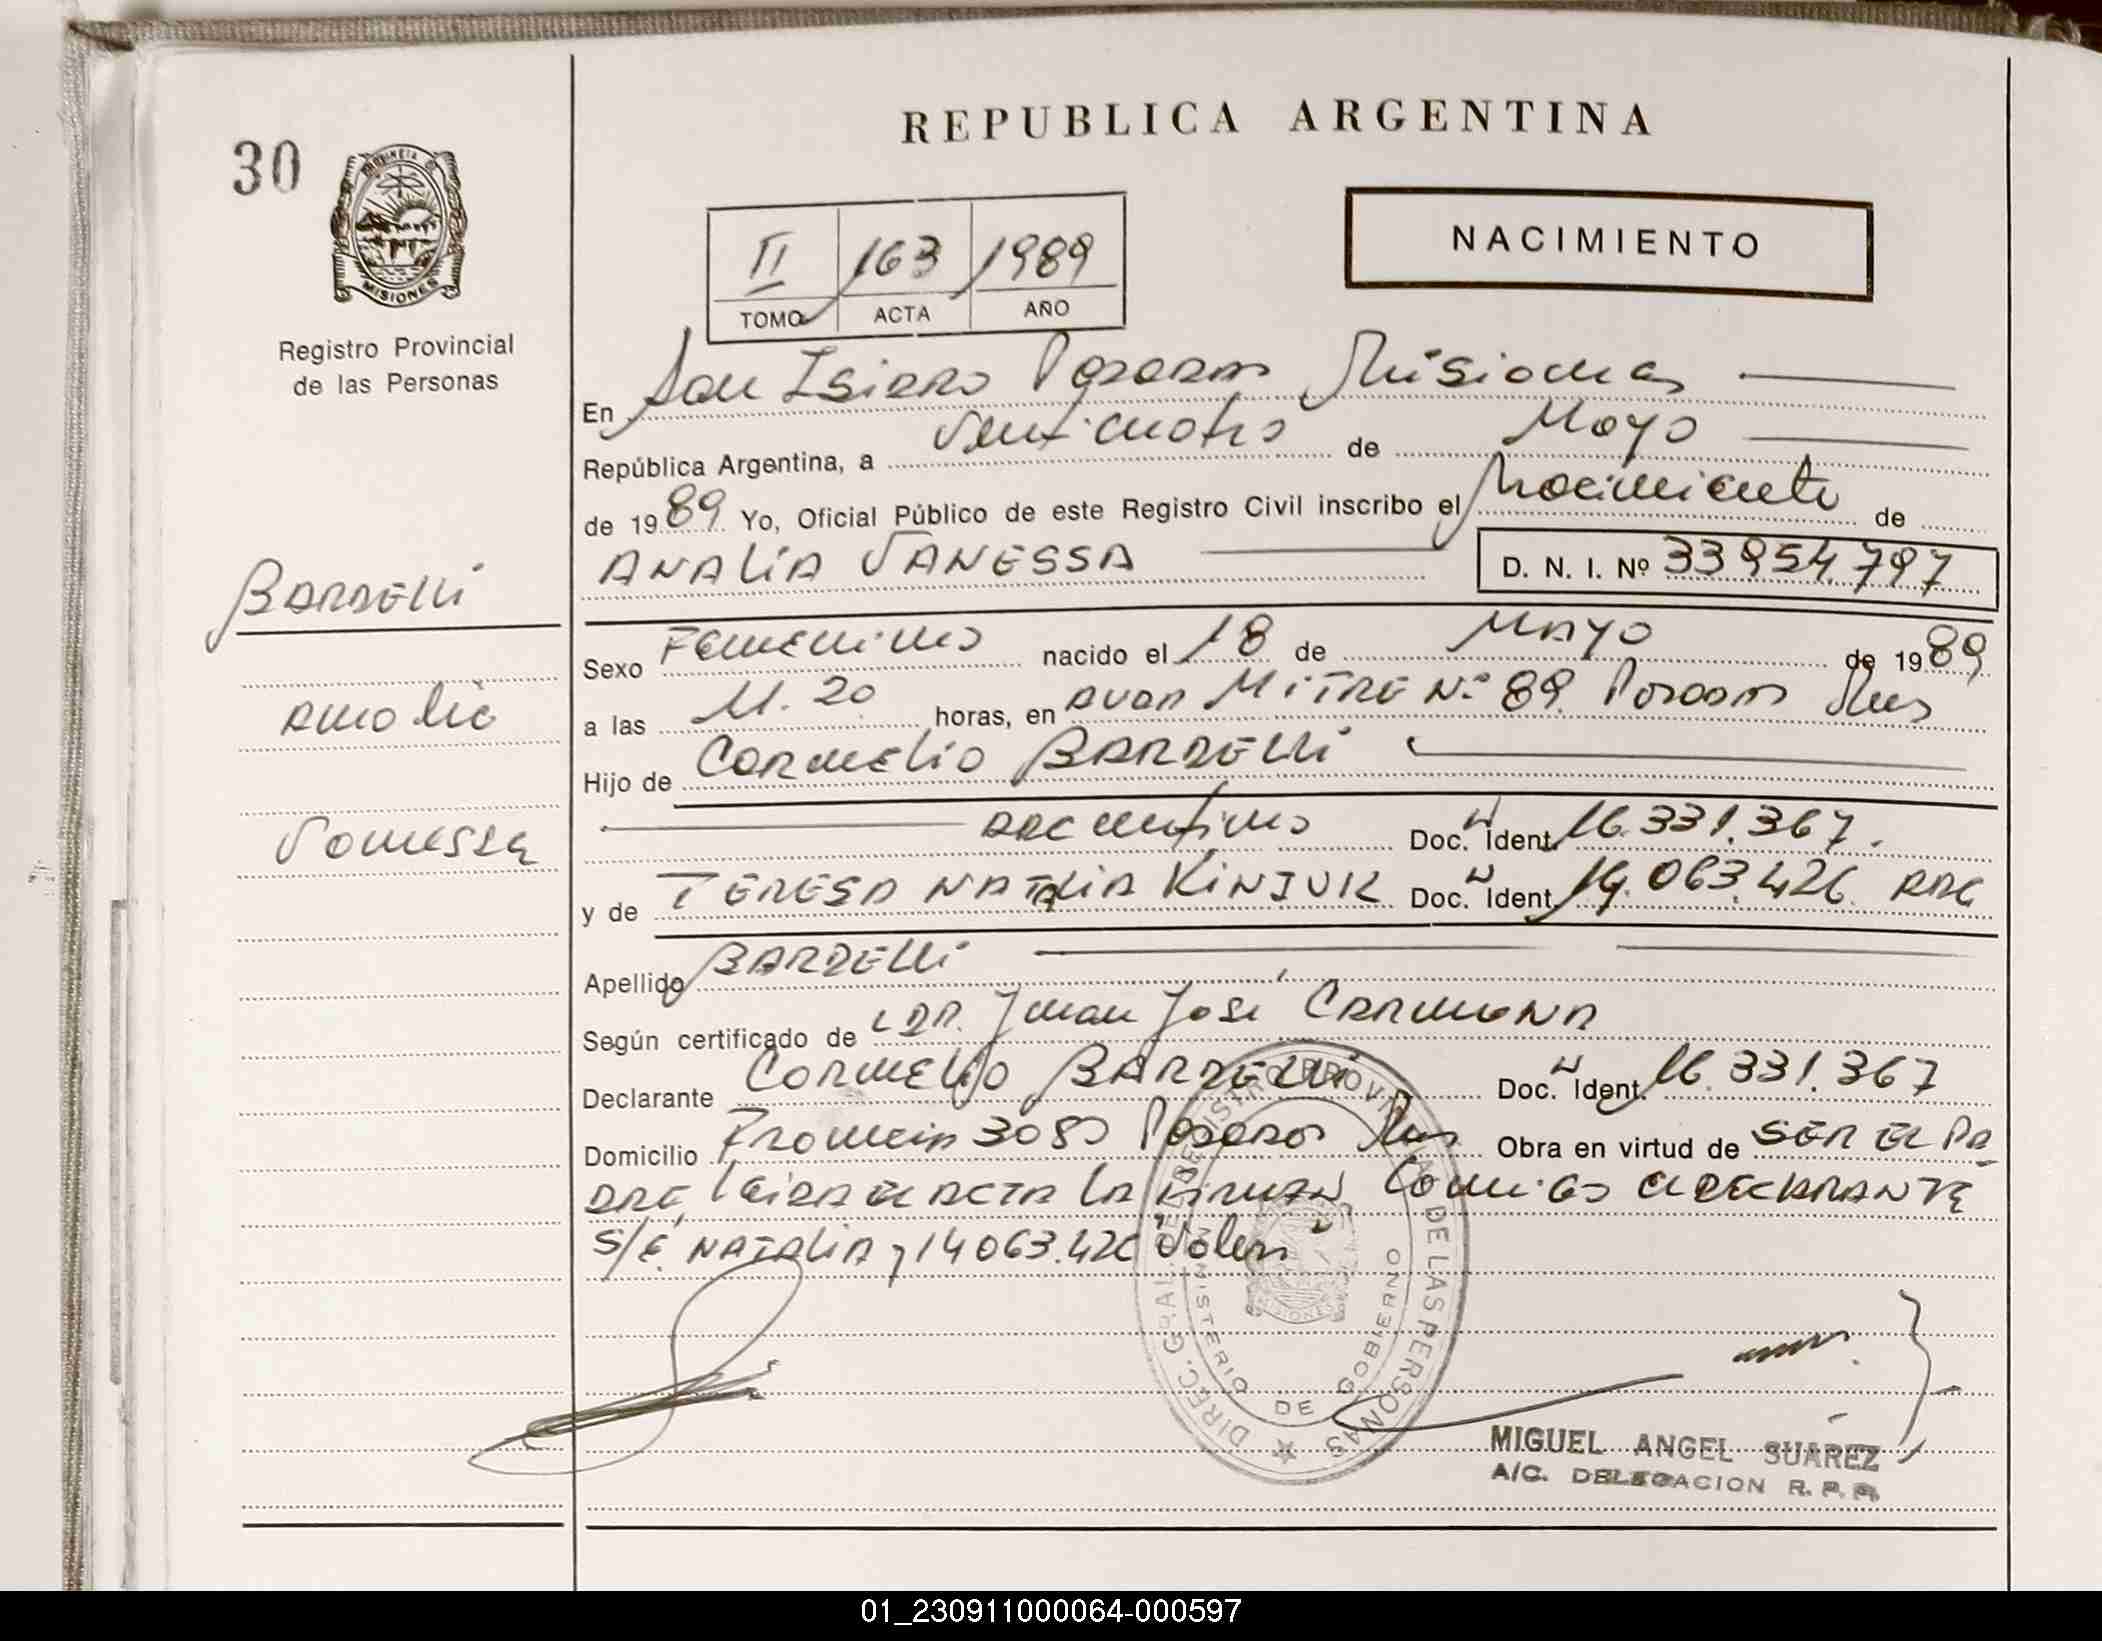 REPUBLICA ARGENTINA
30
PROVINCIA DE MISIONES
Registro Provincial
de las Personas
NACIMIENTO
II 163 1989
TOMO ACTA AÑO
En San Isidro Posadas Misiones
República Argentina, a Veinticuatro de Mayo
de 1989 Yo, Oficial Público de este Registro Civil inscribo el Nacimiento de
ANALIA VANESSA D. N. I. Nº 33954.797
BARDELLI
Analia
Vanessa
Sexo Femenino nacido el 18 de MAYO de 1989
a las 11.20 horas, en AVDA MITRE Nº 89 Posadas Mnes
Hijo de CORNELIO BARDELLI
ARGentino Doc. N Ident. 16.331.367.
y de TERESA NATALIA KINJUK Doc. N Ident. 14.063.426 ARG
Apellido BARDELLI
Según certificado de DR. Juan José CARMONA
Declarante CORNELIO BARDELLI Doc. N Ident. 16.331.367
Domicilio 3085 Posadas Mnes Obra en virtud de SER EL PA-
DRE, leida EL ACTA LA FIRMAN Conmigo El DECLARANTE
S/E. NATALIA, 14063.426 "Valen"
DIREC. GRAL. DEL REGISTRO PROVINCIAL DE LAS PERSONAS
MINISTERIO DE GOBIERNO
MISIONES
MIGUEL ANGEL SUAREZ
A/C. DELEGACION R. P. P.
01_230911000064-000597